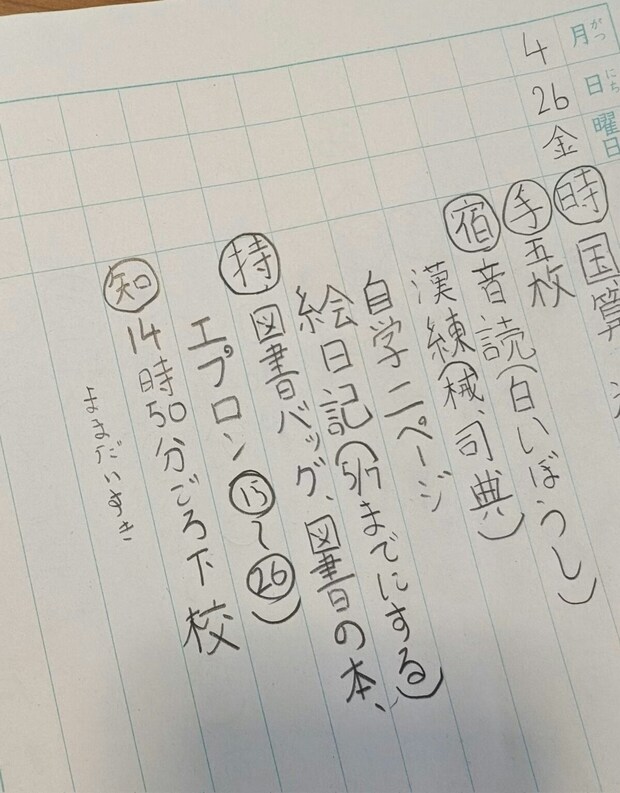 月がつ 日にち 曜日
4 26 金
時 国算
手 五枚
宿 音読(白いぼうし)
漢練(械、司典)
自学 二ページ
絵日記(5/7までにする)
持 図書バッグ、図書の本、
エプロン⑮〜㉖)
知 14時50分ごろ下校
よまだいすき